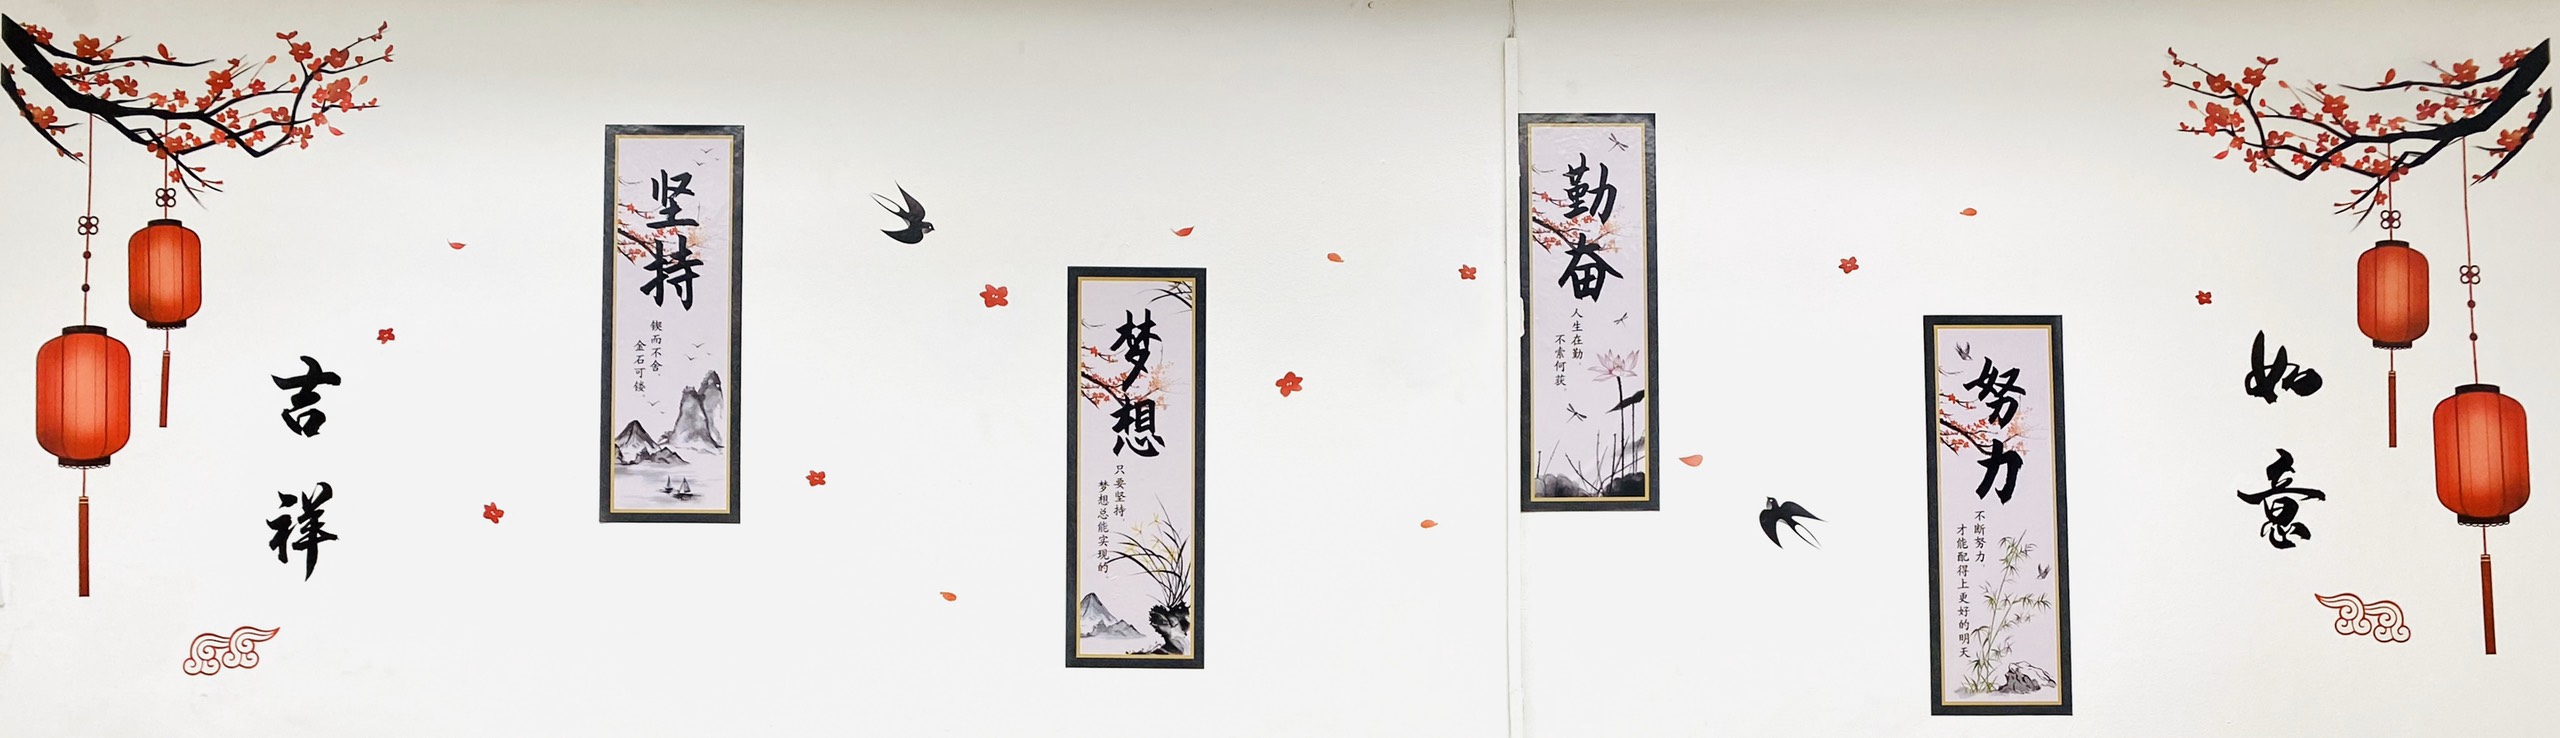 吉祥
坚持
锲而不舍,
金石可镂。
梦想
只要坚持,
梦想总能实现的。
勤奋
人生在勤,
不索何获
努力
不断努力,
才能配得上更好的明天
如意